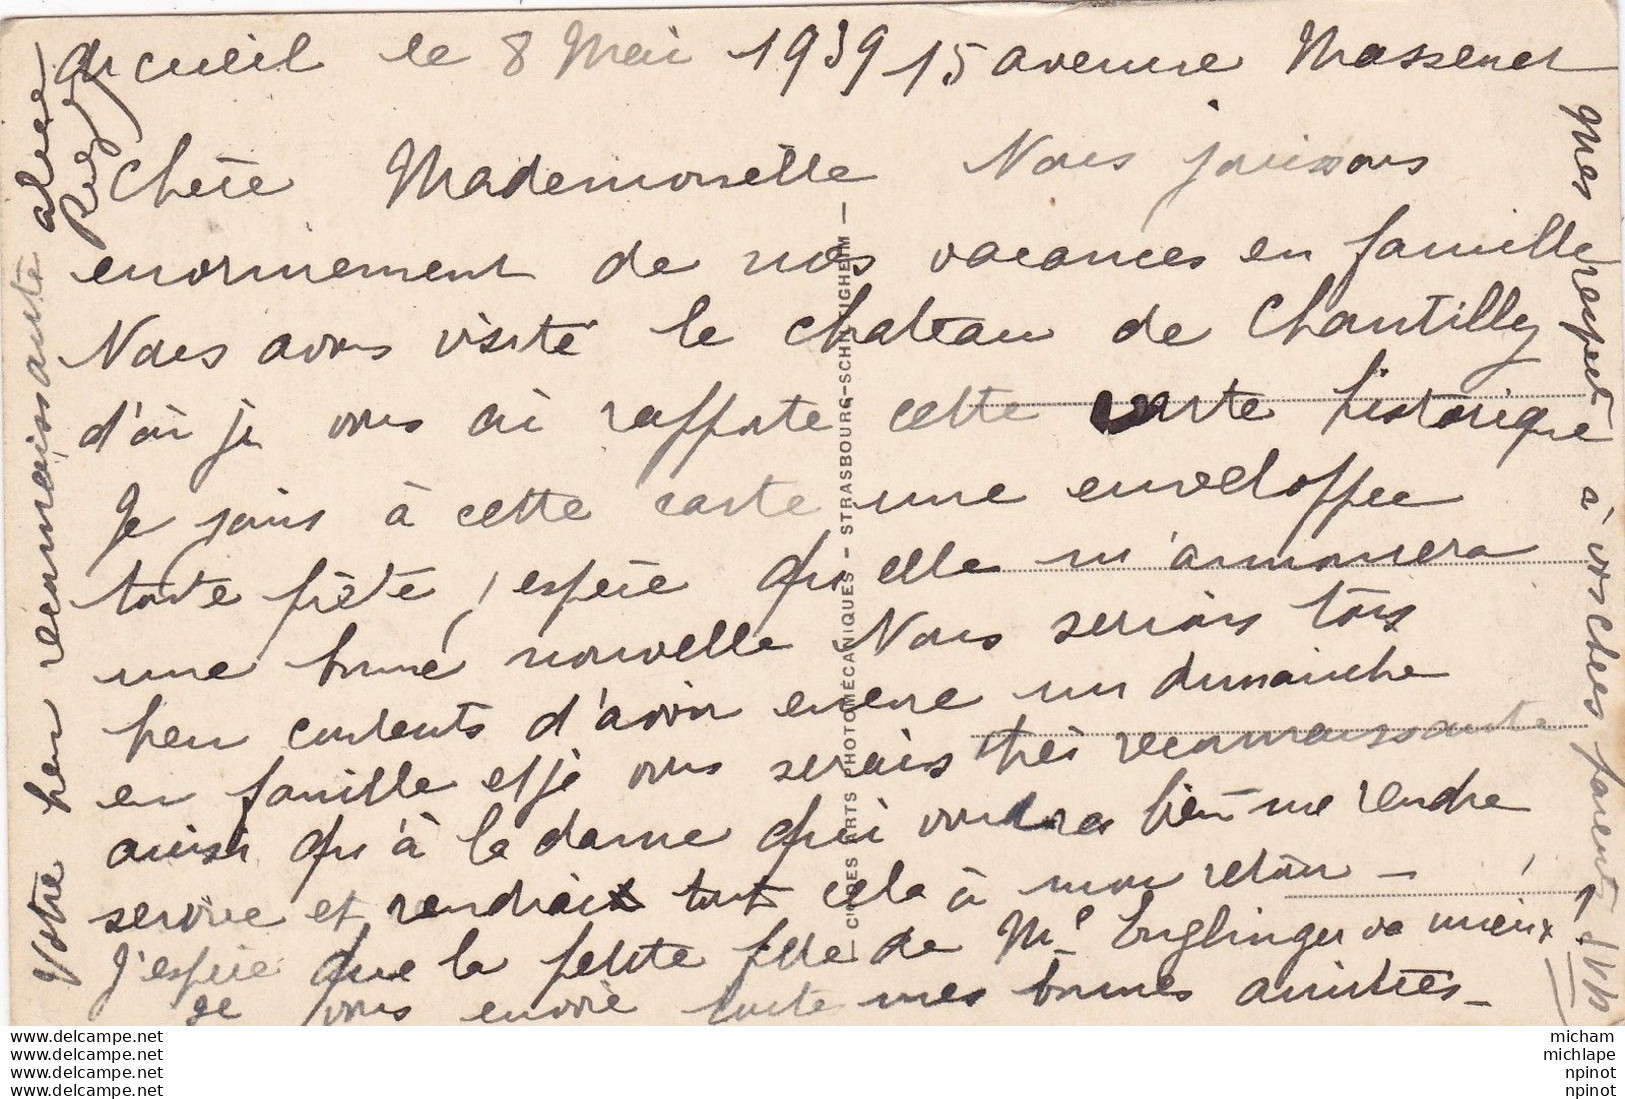 Arcueil le 8 Mai 1939 15 avenue Massenet
Chère Mademoiselle Nous jouissons
enormement de nos vacances en famille
Nous avons visité le chateau de Chantilly
d'où je vous ai rapporte cette carte historique
Je joins à cette carte une enveloppee
toute prète j'espère qu'elle m'annoncera
une bonne nouvelle Nous serions tous
heu contents d'avoir encore un dimanche
en famille et je vous serais très reconnaissante
ainsi qu'à la dame qui voudra bien me rendre
service et rendrait tout cela à mon retour –
J'espère que la petite fille de Me Englinger va mieux
Je vous envoie toute mes bonnes amitiées –
Votre heu reconnaissante alice
mes respect à vos chers parents S.V.P.
CIE DES ARTS PHOTOMÉCANIQUES - STRASBOURG-SCHILTIGHEIM —
www.delcampe.net
www.delcampe.net
www.delcampe.net
www.delcampe.net
micham
michlape
npinot
npinot